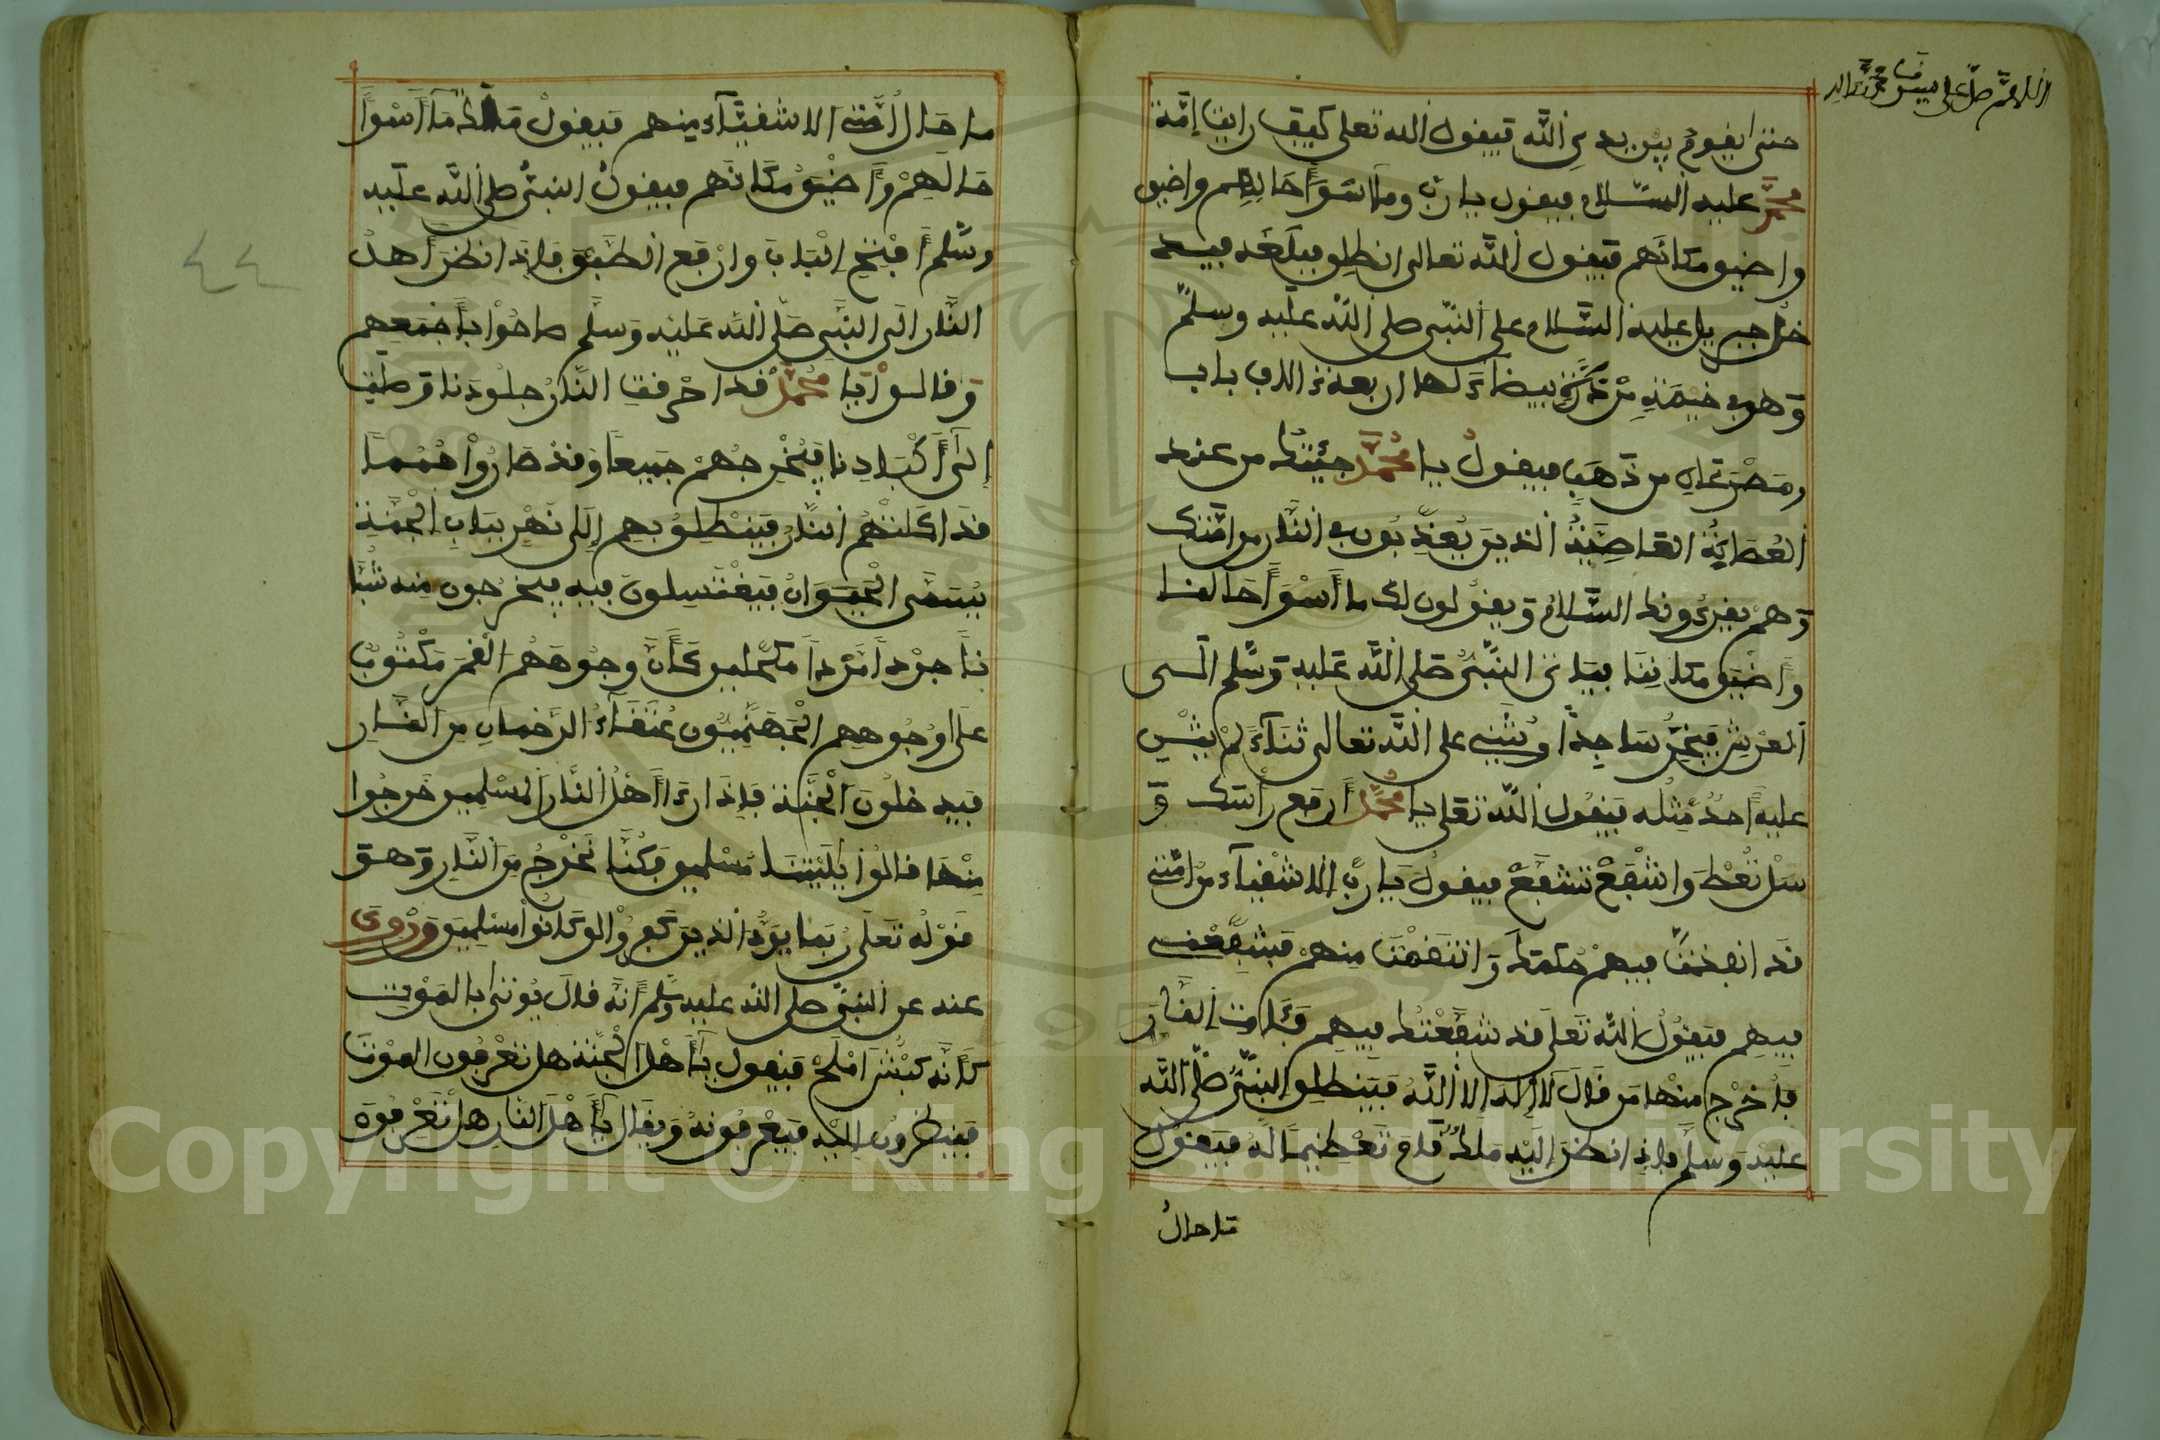 اللهم صل على سيدنا محمد واله
حتى يقوم بين يدي الله فيقول الله تعلى كيف رايت امة
محمد عليه السلام فيقول يا رب وما اسوأ حالهم واضيق
واضيق مكانهم فيقول الله تعالى انطلق
جبريل عليه السلام على النبي صلى الله عليه وسلم
وهو في خيمة من درة بيضاء لها اربعة الاف باب
ومصرعان من ذهب فيقول يا محمد جئتك من عند
العصابة العاصية الذين يعذبون في النار من امتك
وهم يقرءونك السلام ويقولون لك ما أسوأ حالنا
وأضيق مكاننا فياتي النبي صلى الله عليه وسلم الى
العرش فيخر ساجدا ويثني على الله تعالى ثناء لم يثن
عليه أحد مثله فيقول الله تعلى يا محمد أرفع رأسك و
سل تعط واشفع تشفع فيقول يا رب الاشقياء من امتي
قد انفذت فيهم حكمك وانتقمت منهم فشفعني
فيهم فيقول الله تعلى قد شفعتك فيهم فات النار
فأخرج منها من قال لا إله إلا الله فينطلق النبي صلى الله
عليه وسلم فإذا نظر إليه ملك قام تعظيما له فيقول
ما حال
ما حال أمتي الاشقياء منهم فيقول ملك ما أسوأ
حالهم وأضيق مكانهم فيقول النبي صلى الله عليه
وسلم أفتح الباب وارفع الطبق فإذا نظر أهل
النار الى النبي صلى الله عليه وسلم صاحوا بأجمعهم
وقالوا يا محمد قد احرقت النار جلودنا وطلعت
إلى أكبادنا فيخرجهم جميعا وقد صاروا حمما
قد اكلتهم النار فينطلق بهم إلى نهر بباب الجنة
يسمى الحيوان فيغتسلون فيه فيخرجون منه شبا
نا جردا مردا مكحلين كأن وجوههم القمر مكتوب
على وجوههم الجهنميون عتقاء الرحمان من النار
فيدخلون الجنة فإذا رءا أهل النار المسلمين خرجوا
منها قالوا يليتنا مسلمين وكنا نخرج من النار وهو
قوله تعلى ربما يود الذين كفروا لو كانوا مسلمين وروي
عنه عن النبي صلى الله عليه وسلم أنه قال يؤتى بالموت
كأنه كبش املح فيقول يا أهل الجنة هل تعرفون الموت
فينظرون إليه فيعرفونه ويقال يا أهل النار هل تعرفوه
٤٤
Copyright © King Saud University